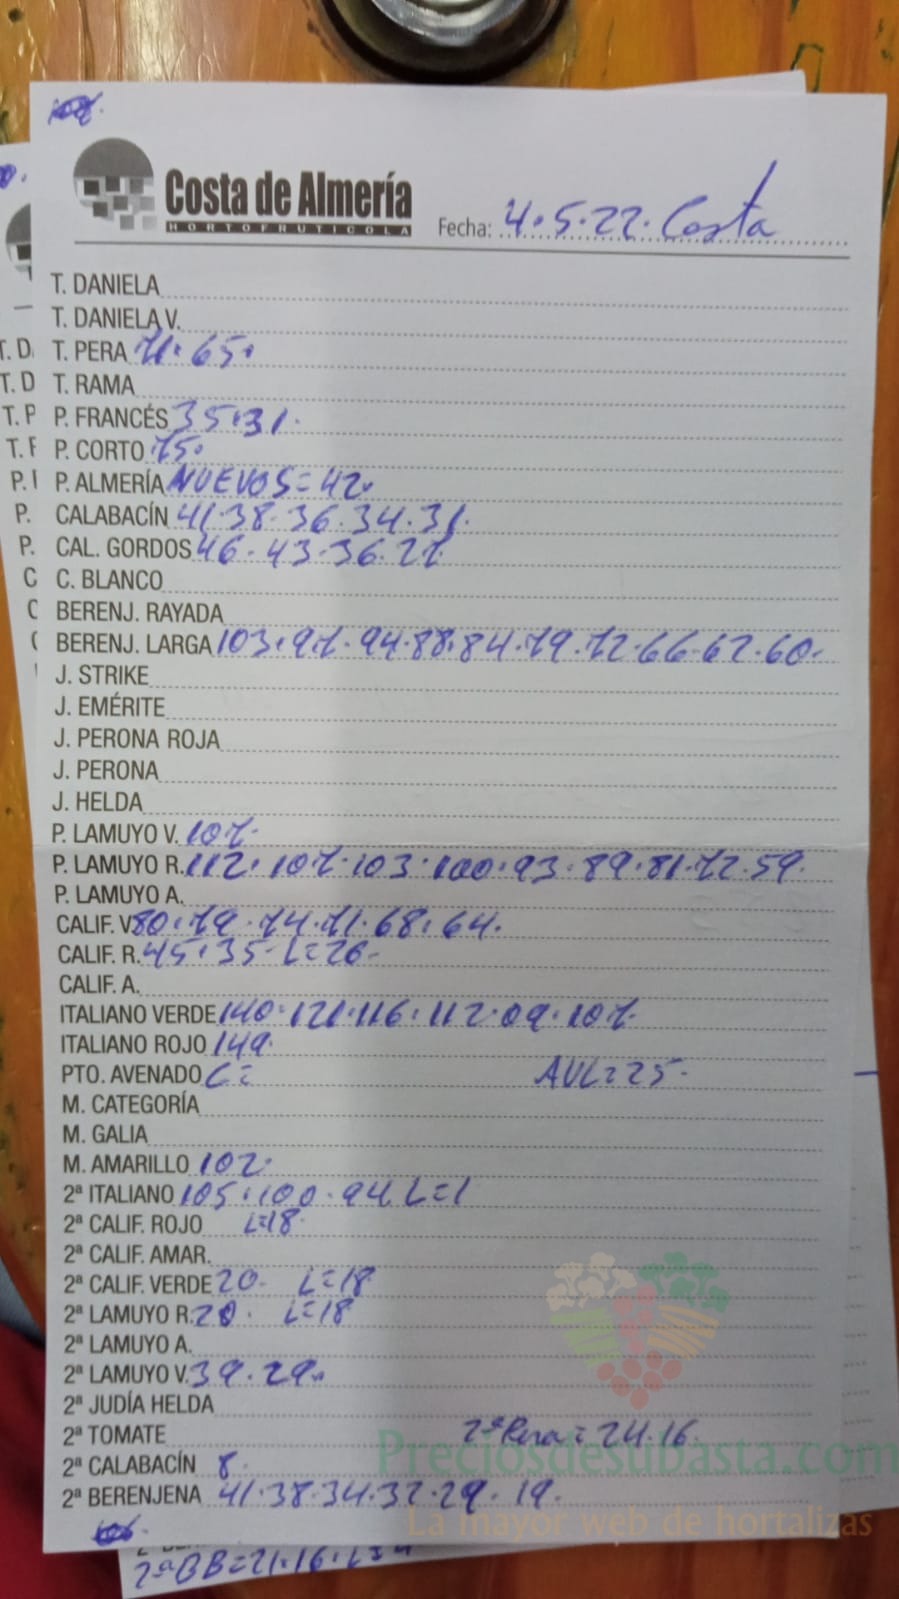 Costa de Almería
HORTOFRUTICOLA
Fecha: 4.5.22. Costa
T. DANIELA
T. DANIELA V.
T. PERA 71. 65.
T. RAMA
P. FRANCÉS 35.31.
P. CORTO 75.
P. ALMERÍA NUEVOS=42.
CALABACÍN 41.38.36.34.31.
CAL. GORDOS 46.43.36.27.
C. BLANCO
BERENJ. RAYADA
BERENJ. LARGA 103.97.94.88.84.79.72.66.62.60.
J. STRIKE
J. EMÉRITE
J. PERONA ROJA
J. PERONA
J. HELDA
P. LAMUYO V. 107.
P. LAMUYO R. 112.107.103.100.93.89.81.72.59.
P. LAMUYO A.
CALIF. V 80.79.74.71.68.64.
CALIF. R. 45.35. L=26.
CALIF. A.
ITALIANO VERDE 140.121.116.112.09.107.
ITALIANO ROJO 149.
PTO. AVENADO C= AVL=25.
M. CATEGORÍA
M. GALIA
M. AMARILLO 102.
2ª ITALIANO 105.100.94. L=1
2ª CALIF. ROJO L=18.
2ª CALIF. AMAR.
2ª CALIF. VERDE 20. L=18
2ª LAMUYO R. 20. L=18
2ª LAMUYO A.
2ª LAMUYO V. 39.29.
2ª JUDÍA HELDA
2ª TOMATE 2ª Pera=24.16.
2ª CALABACÍN 8.
2ª BERENJENA 41.38.34.32.29.19.
Preciosdesubasta.com
La mayor web de hortalizas